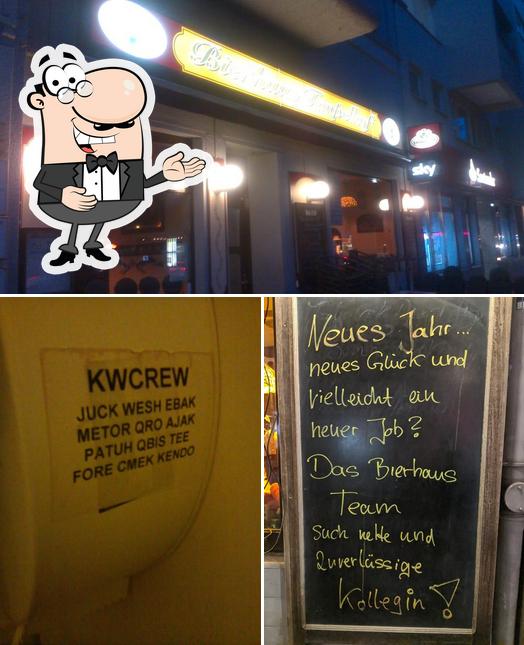 Bierhaus Tempelhof
sky
KWCREW
JUCK WESH EBAK
METOR QRO AJAK
PATUH QBIS TEE
FORE CMEK KENDO
Neues Jahr...
neues Glück und
vielleicht ein
neuer Job?
Das Bierhaus
Team
Such nette und
Zuverlässige
Kollegin!